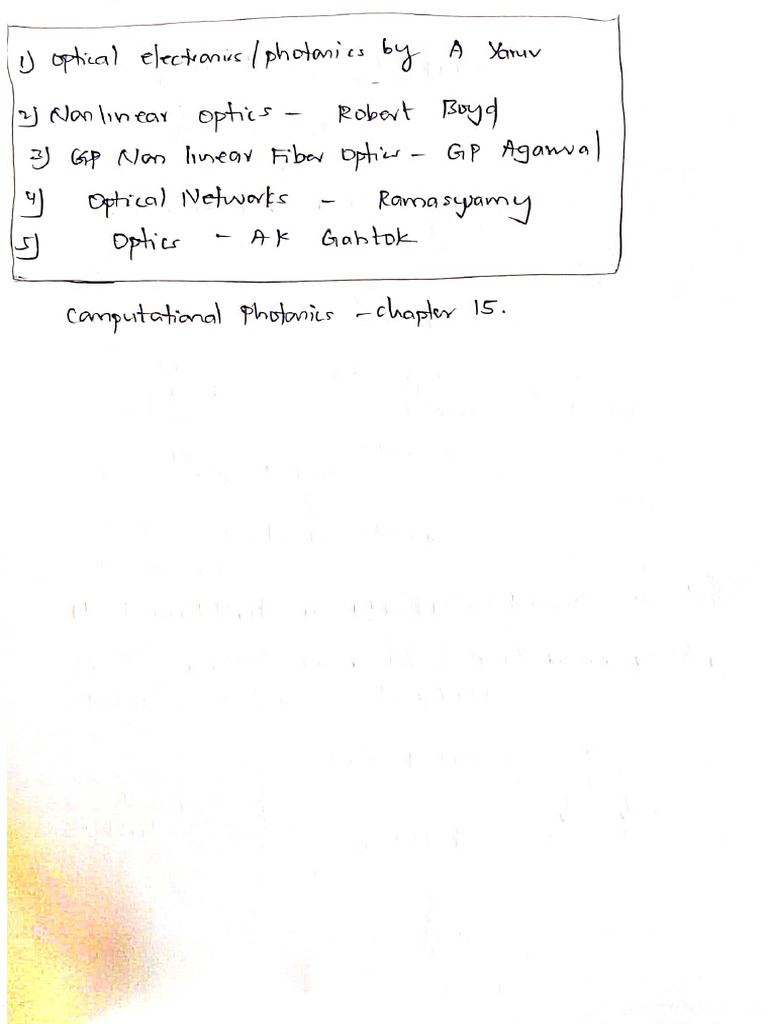 1) Optical electronics/photonics by A Yariv
2) Nonlinear Optics - Robert Boyd
3) GP Non linear Fiber Optics - GP Agarwal
4) Optical Networks - Ramaswamy
5) Optics - AK Gahtok
Computational Photonics - chapter 15.